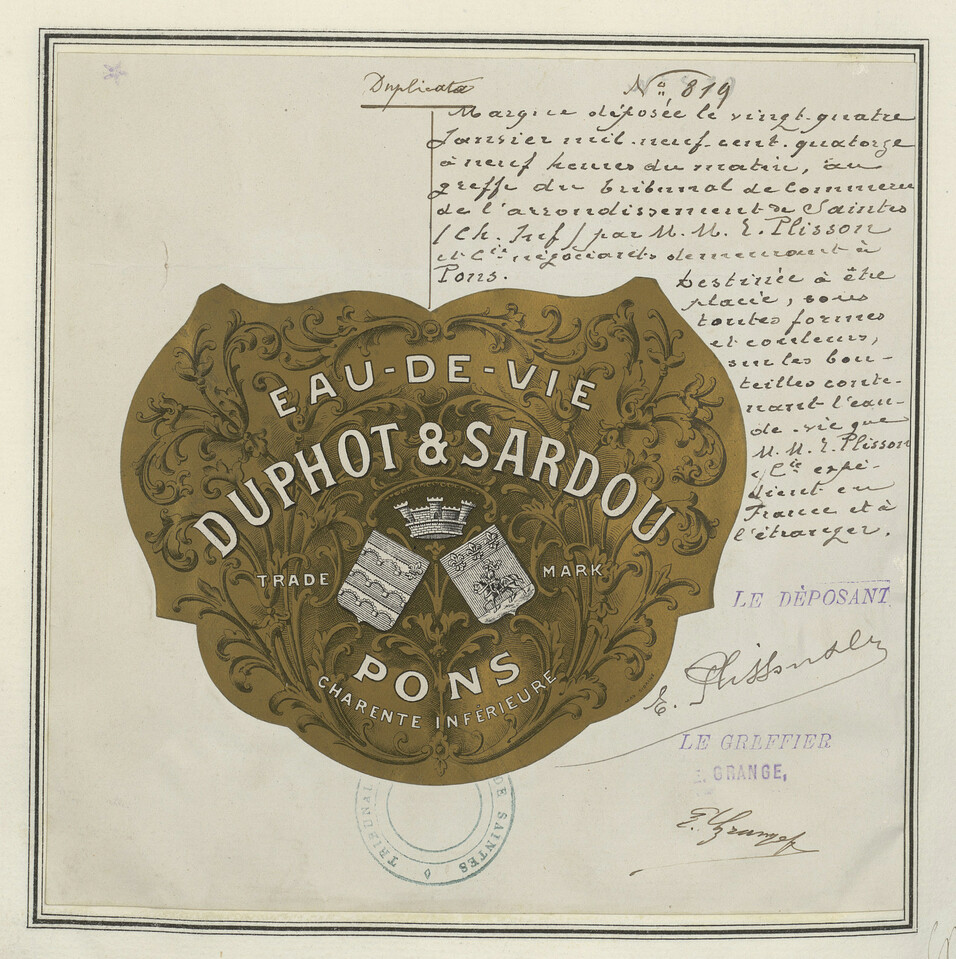 Duplicata
No 819
Marque déposée le vingt-quatre
Janvier mil-neuf-cent-quatorze
à neuf heures du matin, au
greffe du tribunal de Commerce
de l'arrondissement de Saintes
(Ch. Infre) par M. M. E. Plisson
et Cie négociants demeurant à
Pons.
Destinée à être
placée, sous
toutes formes
et couleurs,
sur les bou-
teilles conte-
nant l'eau-
de-vie que
M. M. E. Plisson
& Cie expé-
dient en
France et à
l'étranger.
EAU-DE-VIE
DUPHOT & SARDOU
TRADE MARK
PONS
CHARENTE INFÉRIEURE
LE DÉPOSANT
E. Plisson & Cie
LE GREFFIER
E. GRANGE,
E. Grange
TRIBUNAL DE SAINTES